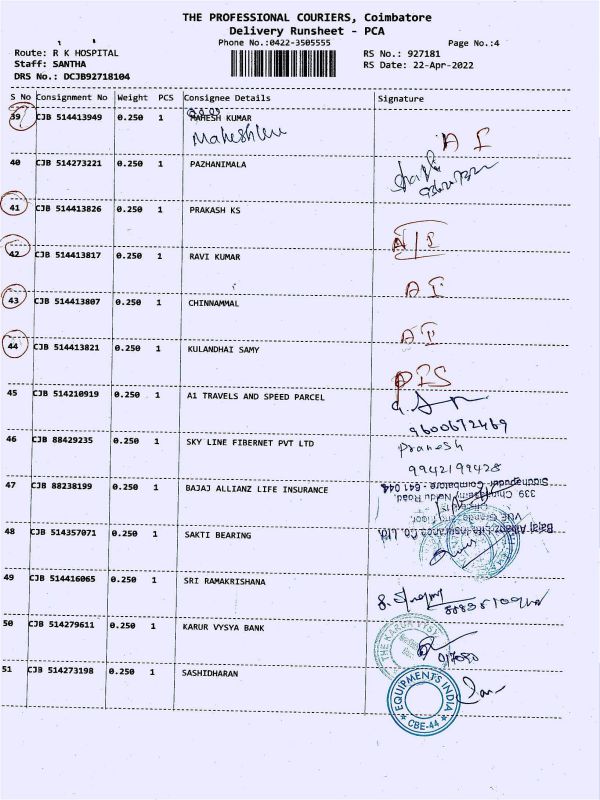 THE PROFESSIONAL COURIERS, Coimbatore
Delivery Runsheet - PCA
Phone No.:0422-3505555
Page No.:4
Route: R K HOSPITAL
RS No.: 927181
Staff: SANTHA
RS Date: 22-Apr-2022
DRS No.: DCJB92718104
S No Consignment No Weight PCS Consignee Details Signature
39 CJB 514413949 0.250 1 MAHESH KUMAR
A I
40 CJB 514273221 0.250 1 PAZHANIMALA
41 CJB 514413826 0.250 1 PRAKASH KS
A I
42 CJB 514413817 0.250 1 RAVI KUMAR
A I
43 CJB 514413807 0.250 1 CHINNAMMAL
A I
44 CJB 514413821 0.250 1 KULANDHAI SAMY
45 CJB 514210919 0.250 1 A1 TRAVELS AND SPEED PARCEL
9600672469
46 CJB 88429235 0.250 1 SKY LINE FIBERNET PVT LTD
Pranesh
9942199428
47 CJB 88238199 0.250 1 BAJAJ ALLIANZ LIFE INSURANCE
Bajaj Allianz Life Insurance Co. Ltd.
339, Chinnasamy Naidu Road,
Siddhapudur, Coimbatore - 641 044
48 CJB 514357071 0.250 1 SAKTI BEARING
49 CJB 514416065 0.250 1 SRI RAMAKRISHANA
50 CJB 514279611 0.250 1 KARUR VYSYA BANK
THE KARUR VYSYA
51 CJB 514273198 0.250 1 SASHIDHARAN
EQUIPMENTS INDIA
CBE-44